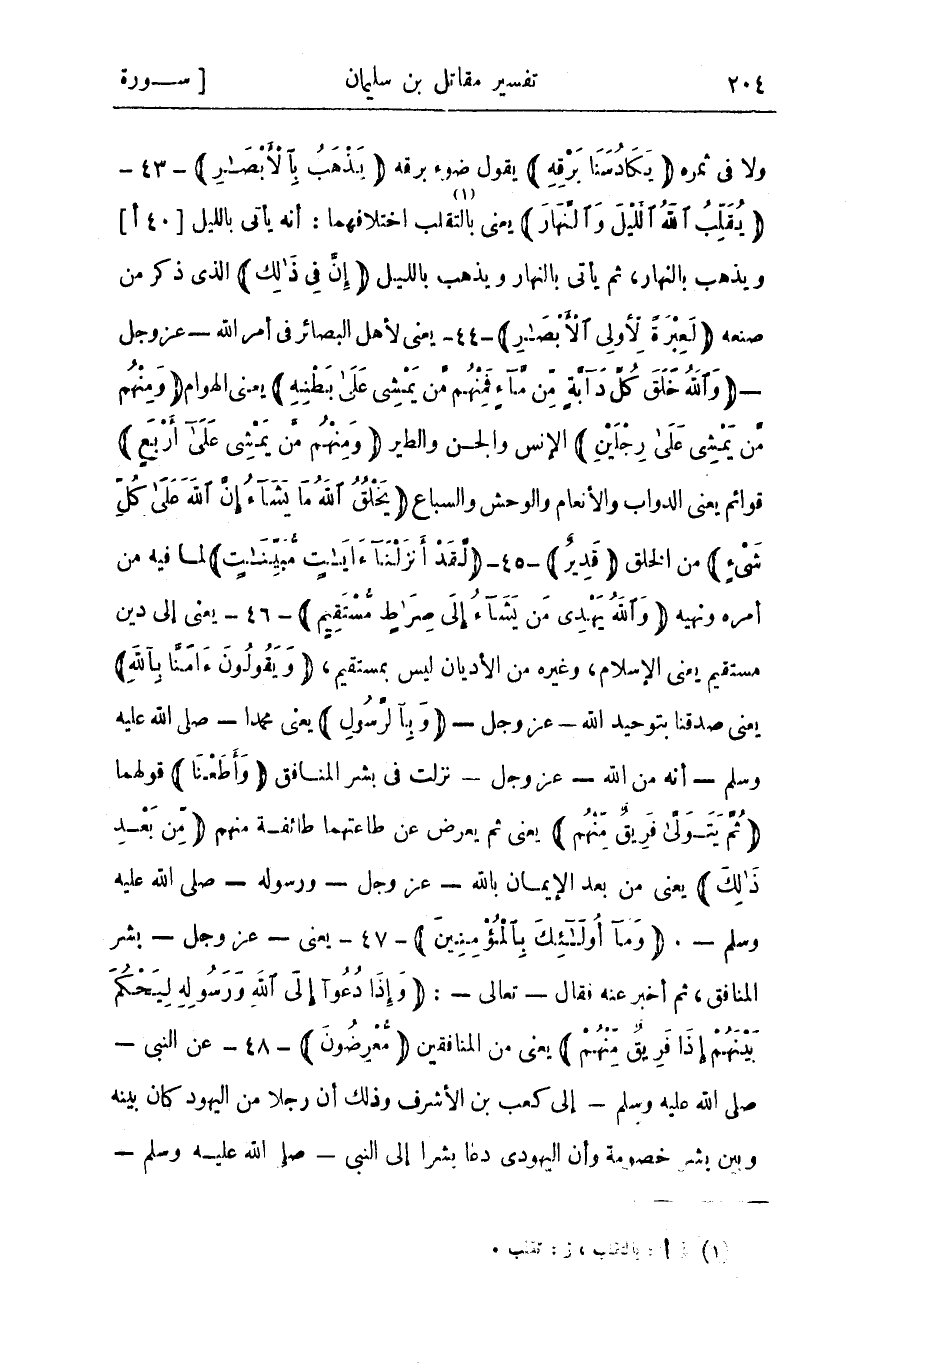 ٢٠٤ تفسير مقاتل بن سليمان [ ســورة
ولا فى ثمره ﴿ يَكَادُ سَنَا بَرْقِهِ ﴾ يقول ضوء برقه ﴿ يَذْهَبُ بِٱلْأَبْصَـٰرِ ﴾ - ٤٣ -
﴿ يُقَلِّبُ ٱللَّهُ ٱللَّيْلَ وَٱلنَّهَارَ ﴾ يعنى بالتقلب (١) اختلافهما : أنه يأتى بالليل [ ٤٠ أ ]
ويذهب بالنهار، ثم يأتى بالنهار ويذهب بالليـل ﴿ إِنَّ فِى ذَٰلِكَ ﴾ الذى ذكر من
صنعه ﴿ لَعِبْرَةً لِّأُولِى ٱلْأَبْصَـٰرِ ﴾ -٤٤- يعنى لأهل البصائر فى أمر الله — عز وجل
— ﴿ وَٱللَّهُ خَلَقَ كُلَّ دَآبَّةٍ مِّن مَّآءٍ فَمِنْهُم مَّن يَمْشِى عَلَىٰ بَطْنِهِ ﴾ يعنى الهوام ﴿ وَمِنْهُم
مَّن يَمْشِى عَلَىٰ رِجْلَيْنِ ﴾ الإنس والجـن والطير ﴿ وَمِنْهُم مَّن يَمْشِى عَلَىٰٓ أَرْبَعٍ ﴾
قوائم يعنى الدواب والأنعام والوحش والسباع ﴿ يَخْلُقُ ٱللَّهُ مَا يَشَآءُ إِنَّ ٱللَّهَ عَلَىٰ كُلِّ
شَىْءٍ ﴾ من الخلق ﴿ قَدِيرٌ ﴾ -٤٥- ﴿ لَّقَدْ أَنزَلْنَآ ءَايَـٰتٍ مُّبَيِّنَـٰتٍ ﴾ لمـا فيه من
أمره ونهيه ﴿ وَٱللَّهُ يَهْدِى مَن يَشَآءُ إِلَىٰ صِرَٰطٍ مُّسْتَقِيمٍ ﴾ - ٤٦ - يعنى إلى دين
مستقيم يعنى الإسلام، وغيره من الأديان ليس بمستقيم، ﴿ وَيَقُولُونَ ءَامَنَّا بِٱللَّهِ ﴾
يعنى صدقنا بتوحيد الله — عز وجل — ﴿ وَبِٱلرَّسُولِ ﴾ يعنى محمدا — صلى الله عليه
وسلم — أنه من الله — عز وجل — نزلت فى بشر المنـافق ﴿ وَأَطَعْنَا ﴾ قولهما
﴿ ثُمَّ يَتَـوَلَّىٰ فَرِيقٌ مِّنْهُم ﴾ يعنى ثم يعرض عن طاعتهما طائفـة منهم ﴿ مِّن بَعْـدِ
ذَٰلِكَ ﴾ يعنى من بعد الإيمـان بالله — عز وجل — ورسوله — صلى الله عليه
وسلم — . ﴿ وَمَآ أُولَـٰٓئِكَ بِٱلْمُؤْمِنِينَ ﴾ - ٤٧ - يعنى — عز وجل — بشر
المنافق، ثم أخبر عنه فقال — تعالى — : ﴿ وَإِذَا دُعُوٓا۟ إِلَى ٱللَّهِ وَرَسُولِهِ لِيَحْكُمَ
بَيْنَهُمْ إِذَا فَرِيقٌ مِّنْهُمْ ﴾ يعنى من المنافقين ﴿ مُّعْرِضُونَ ﴾ - ٤٨ - عن النبى —
صلى الله عليه وسلم — إلى كعب بن الأشرف وذلك أن رجلا من اليهود كان بينه
وبين بشر خصومة وأن اليهودى دعا بشرا إلى النبى — صلى الله عليـه وسلم —
(١) أ : ، ز : تقلب .